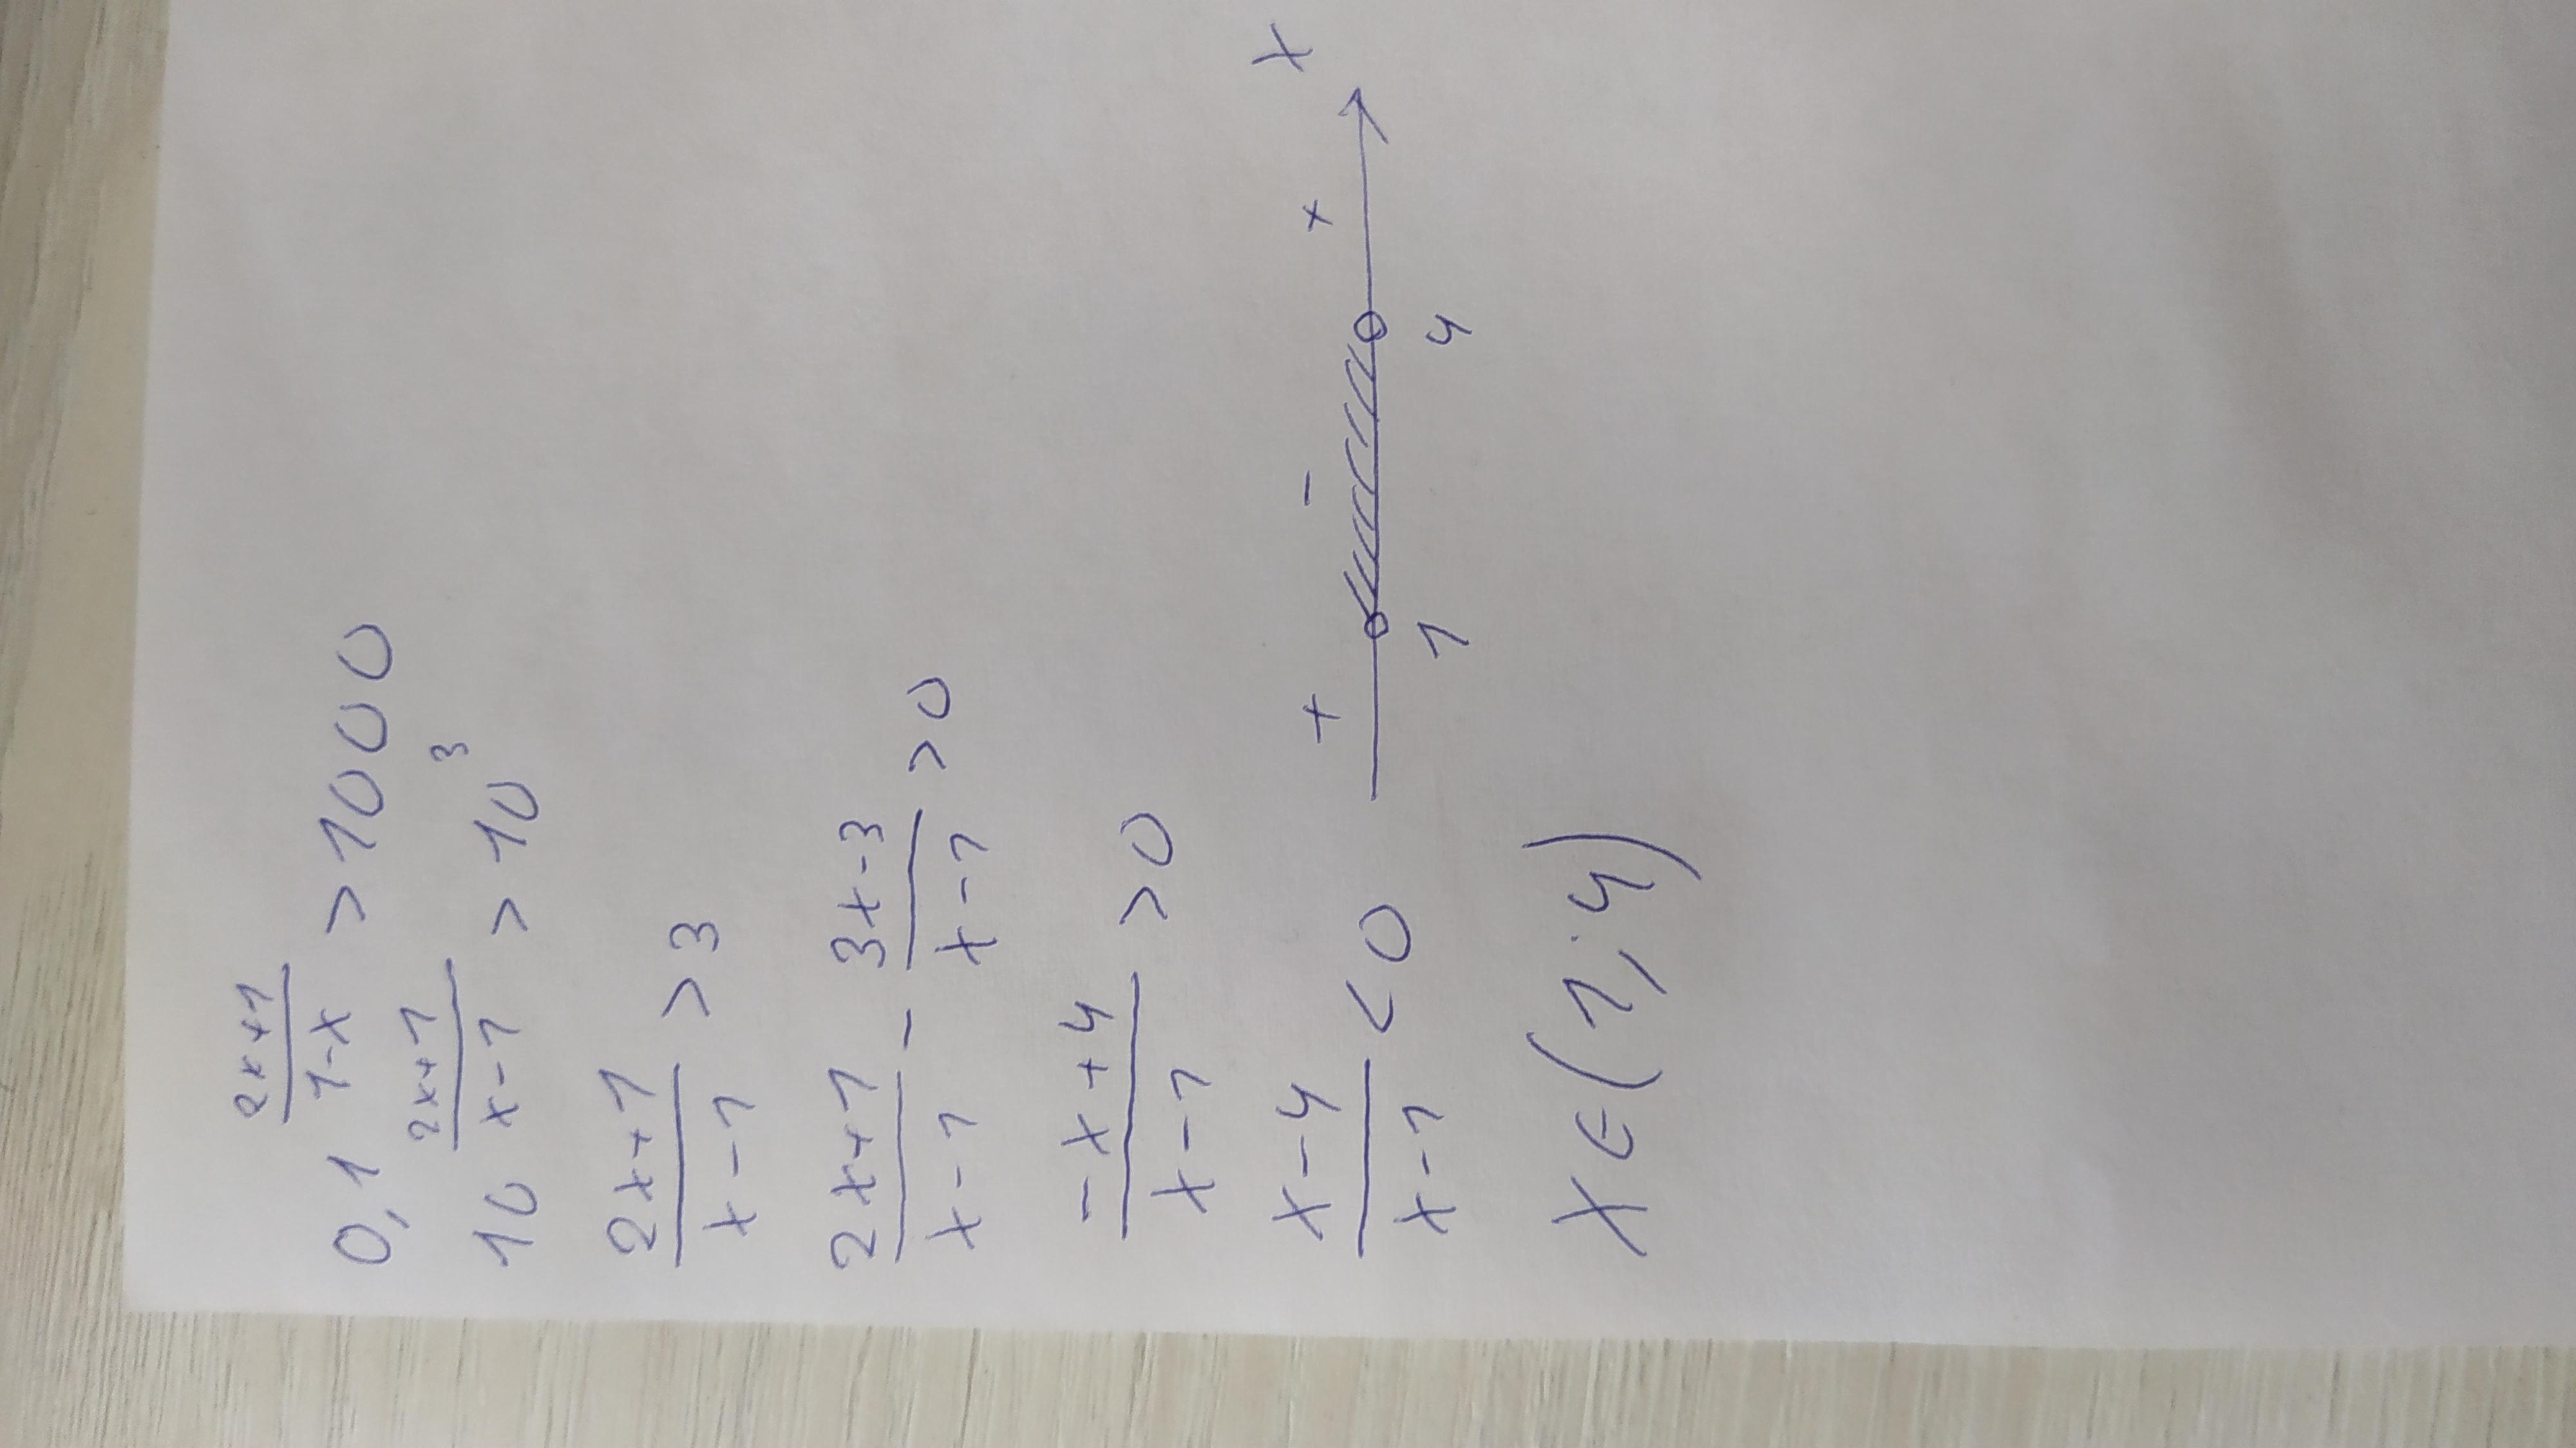 0,1^((2x+1)/(1-x)) > 1000
10^((2x+1)/(x-1)) > 10^3
(2x+1)/(x-1) > 3
(2x+1)/(x-1) - (3x-3)/(x-1) > 0
(-x+4)/(x-1) > 0
(x-4)/(x-1) < 0
+ - + x
1 4
x ∈ (1; 4)